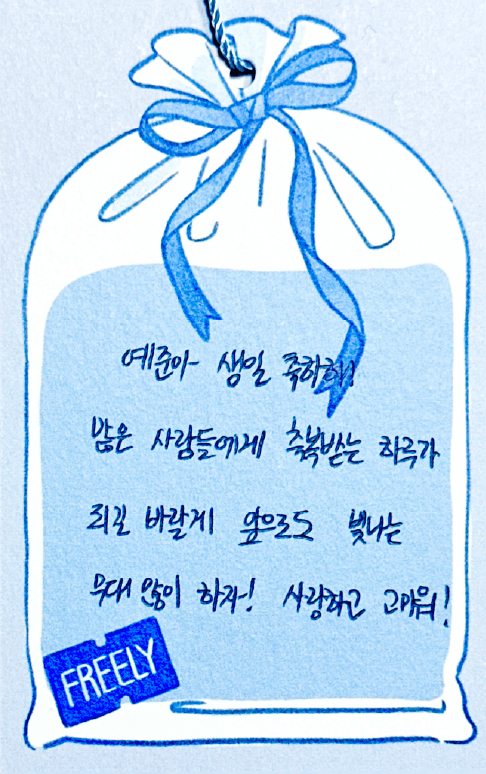 예준아 생일 축하해!
많은 사람들에게 축복받는 하루가
되길 바랄게 앞으로도 빛나는
무대 많이 하자! 사랑하고 고마워!
FREELY